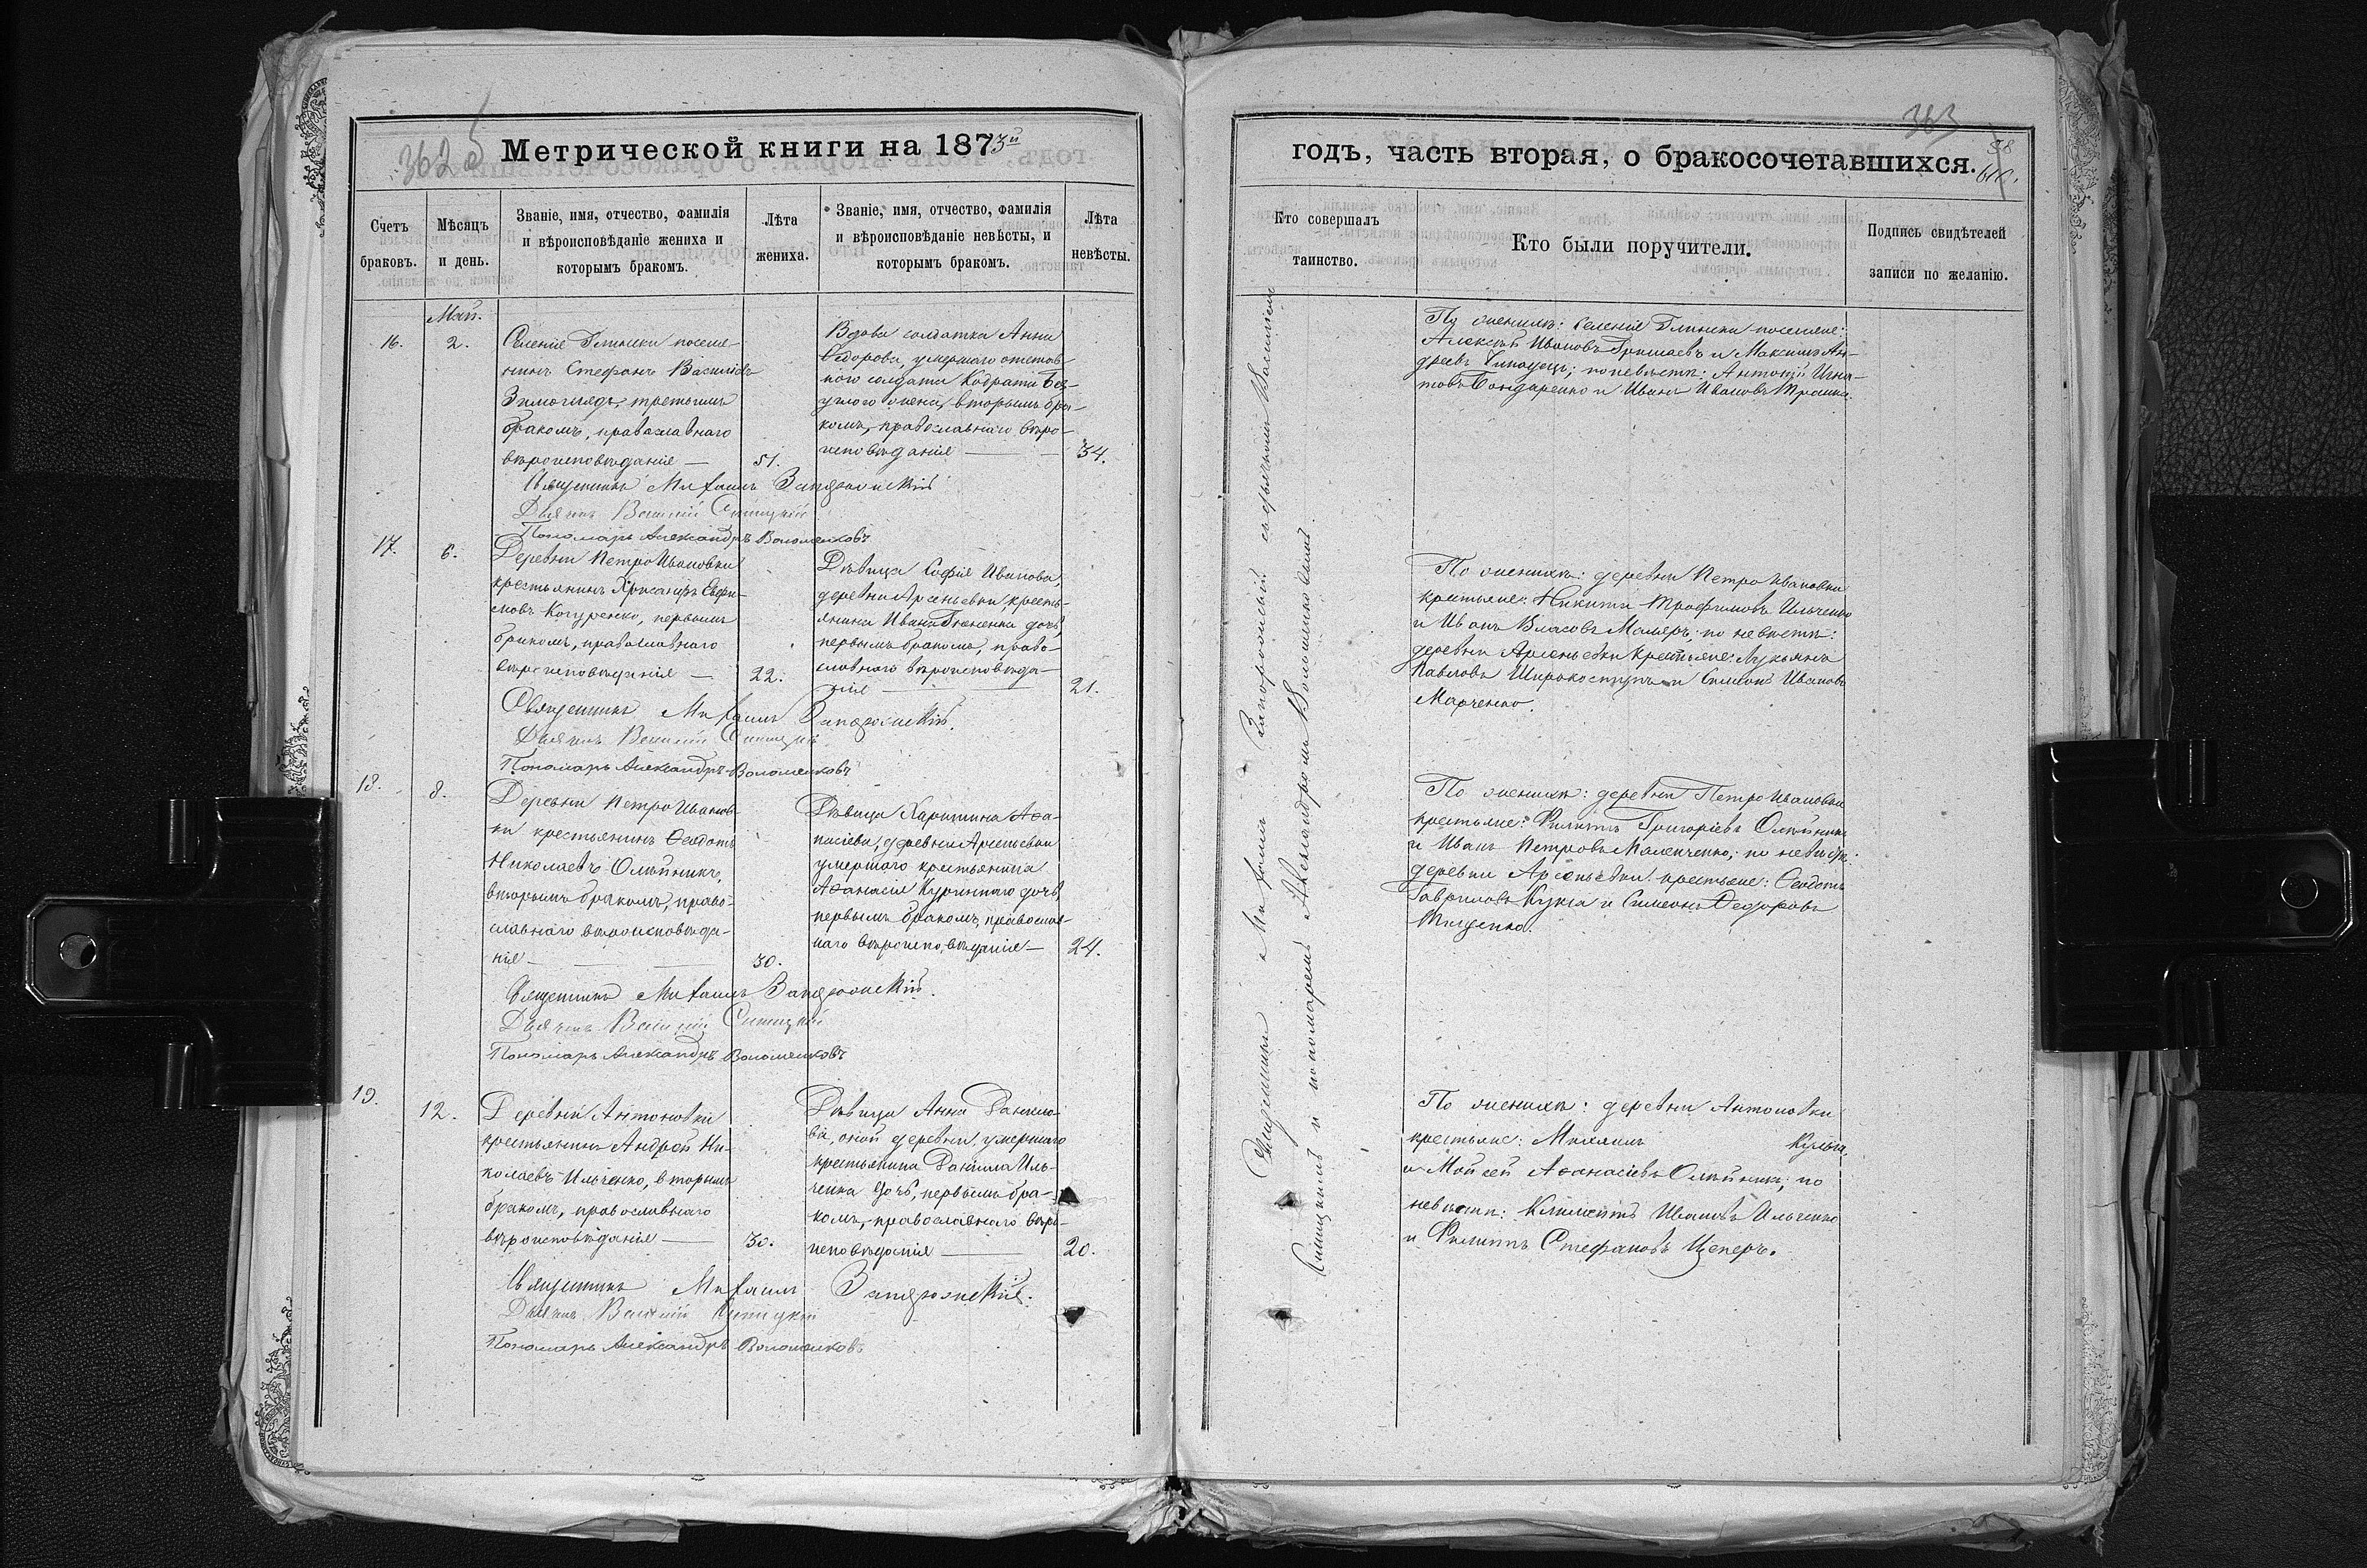 362
Метрической книги на 1873й
Счетъ браковъ.
Мѣсяцъ и день.
Званіе, имя, отчество, фамилія
и вѣроисповѣданіе жениха и
которымъ бракомъ.
Лѣта жениха.
Званіе, имя, отчество, фамилія
и вѣроисповѣданіе невѣсты, и
которымъ бракомъ.
Лѣта невѣсты.
Май.
16.
2.
Селенія Глински поселе-
нинъ Стефанъ Васильевъ
третьимъ
бракомъ, православнаго
вѣроисповѣданія —
51.
Вдова солдатка Анна
Ѳедорова, умершаго отстав-
ного солдата Кодрата Без-
углого жена, вторымъ бра-
комъ, православнаго вѣро-
исповѣданія —
34.
Священникъ Михаилъ Запорожскій
Дьячокъ Василій Синицкій
Пономарь Александръ Воломенковъ
17.
6.
Деревни ПетроИвановки
крестьянинъ Хрисанфъ Евфи-
мовъ Коцуренко, первымъ
бракомъ, православнаго
вѣроисповѣданія —
22.
Дѣвица Софія Иванова,
деревни Арсеньевки, кресть-
янина Ивана дочь,
первымъ бракомъ, право-
славнаго вѣроисповѣда-
нія —
21.
Священникъ Михаилъ Запорожскій.
Дьячокъ Василій Синицкій
Пономарь Александръ Воломенковъ
18.
8.
Деревни ПетроИванов-
ки крестьянинъ Ѳеодотъ
Николаевъ Олѣйникъ,
вторымъ бракомъ, право-
славнаго вѣроисповѣда-
нія —
30.
Дѣвица Харитина Аѳа-
насіева, деревни Арсеньевки
умершаго крестьянина
Аѳанасія дочь,
первымъ бракомъ, православ-
наго вѣроисповѣданія —
24.
Священникъ Михаилъ Запорожскій.
Дьячокъ Василій Синицкій
Пономарь Александръ Воломенковъ
19.
12.
Деревни Антоновки
крестьянинъ Андрей Ни-
колаевъ Ильченко, вторымъ
бракомъ, православнаго
вѣроисповѣданія —
30.
Дѣвица Анна Данило-
ва, оной деревни, умершаго
крестьянина Даніила Иль-
ченка дочь, первымъ бра-
комъ, православнаго вѣро-
исповѣданія —
20.
Священникъ Михаилъ Запорожскій.
Дьячокъ Василій Синицкій
Пономарь Александръ Воломенковъ
363
годъ, часть вторая, о бракосочетавшихся.
Кто совершалъ
таинство.
Кто были поручители.
Подпись свидѣтелей
записи по желанію.
Священникъ Михаилъ Запорожскій съ дьячкомъ Василіемъ
Синицкимъ и пономаремъ Александромъ Воломенковымъ.
По женихѣ: селенія Глински поселяне:
Алексѣй Ивановъ и Максимъ Ан-
дреевъ по невѣстѣ: Антоній Игна-
товъ Бондаренко и Иванъ Ивановъ
По женихѣ: деревни ПетроИвановки
крестьяне: Никита Трофимовъ Ильченко
и Иванъ Власовъ Маляръ; по невѣстѣ:
деревни Арсеньевки крестьяне: Лукьянъ
Павловъ Широкоступъ и Симеонъ Ивановъ
Марченко.
По женихѣ: деревни ПетроИвановки
крестьяне: Филиппъ Григоріевъ Олѣйникъ
и Иванъ Петровъ по невѣстѣ:
деревни Арсеньевки крестьяне: Ѳеодотъ
Гавриловъ Кукса и Симеонъ Ѳедоровъ
Тищенко.
По женихѣ: деревни Антоновки
крестьяне: Михаилъ
и Мойсей Аѳанасіевъ Олѣйникъ, по
невѣстѣ: Климентъ Ивановъ Ильченко
и Филиппъ Стефановъ